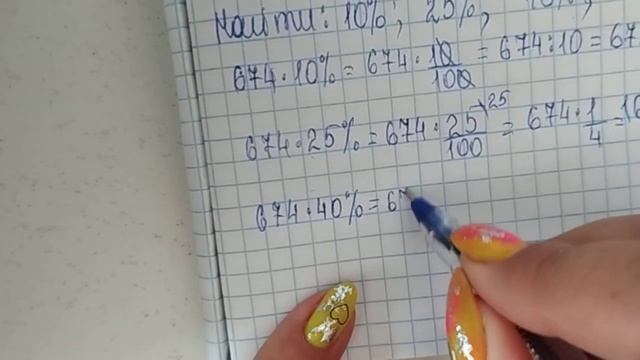 Найти: 10%, 25%,
674 · 10% = 674 · 10/100 = 674 : 10 = 67
674 · 25% = 674 · 25/100 25 = 674 · 1/4 = 16
674 · 40% = 67